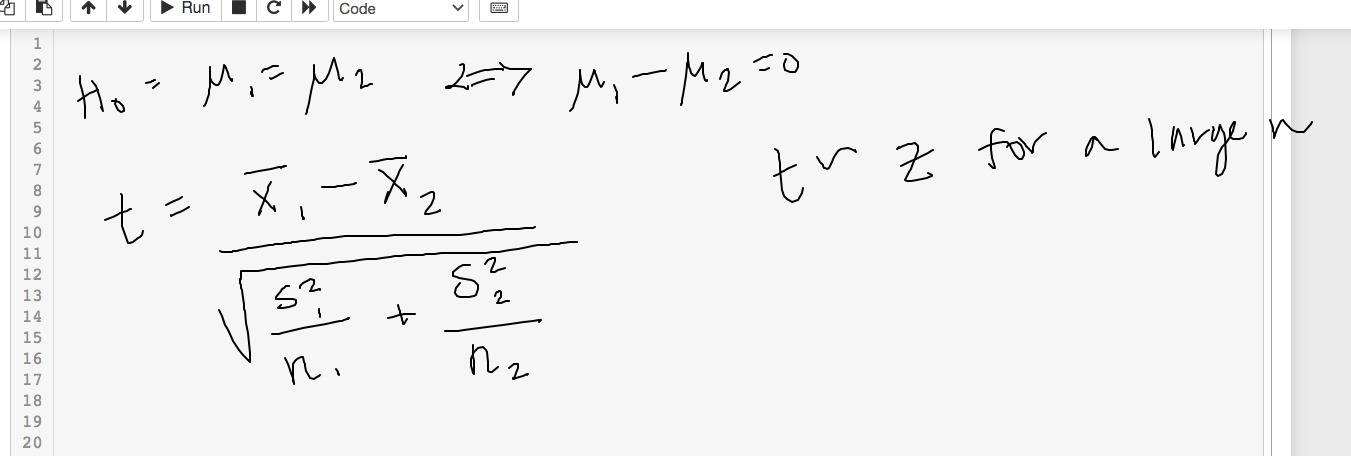 Run Code
1
2
3
4
5
6
7
8
9
10
11
12
13
14
15
16
17
18
19
20
H₀ = μ₁ = μ₂ <=> μ₁ - μ₂ = 0
t ~ z for a large n
t = (x̄₁ - x̄₂) / √(s₁²/n₁ + s₂²/n₂)